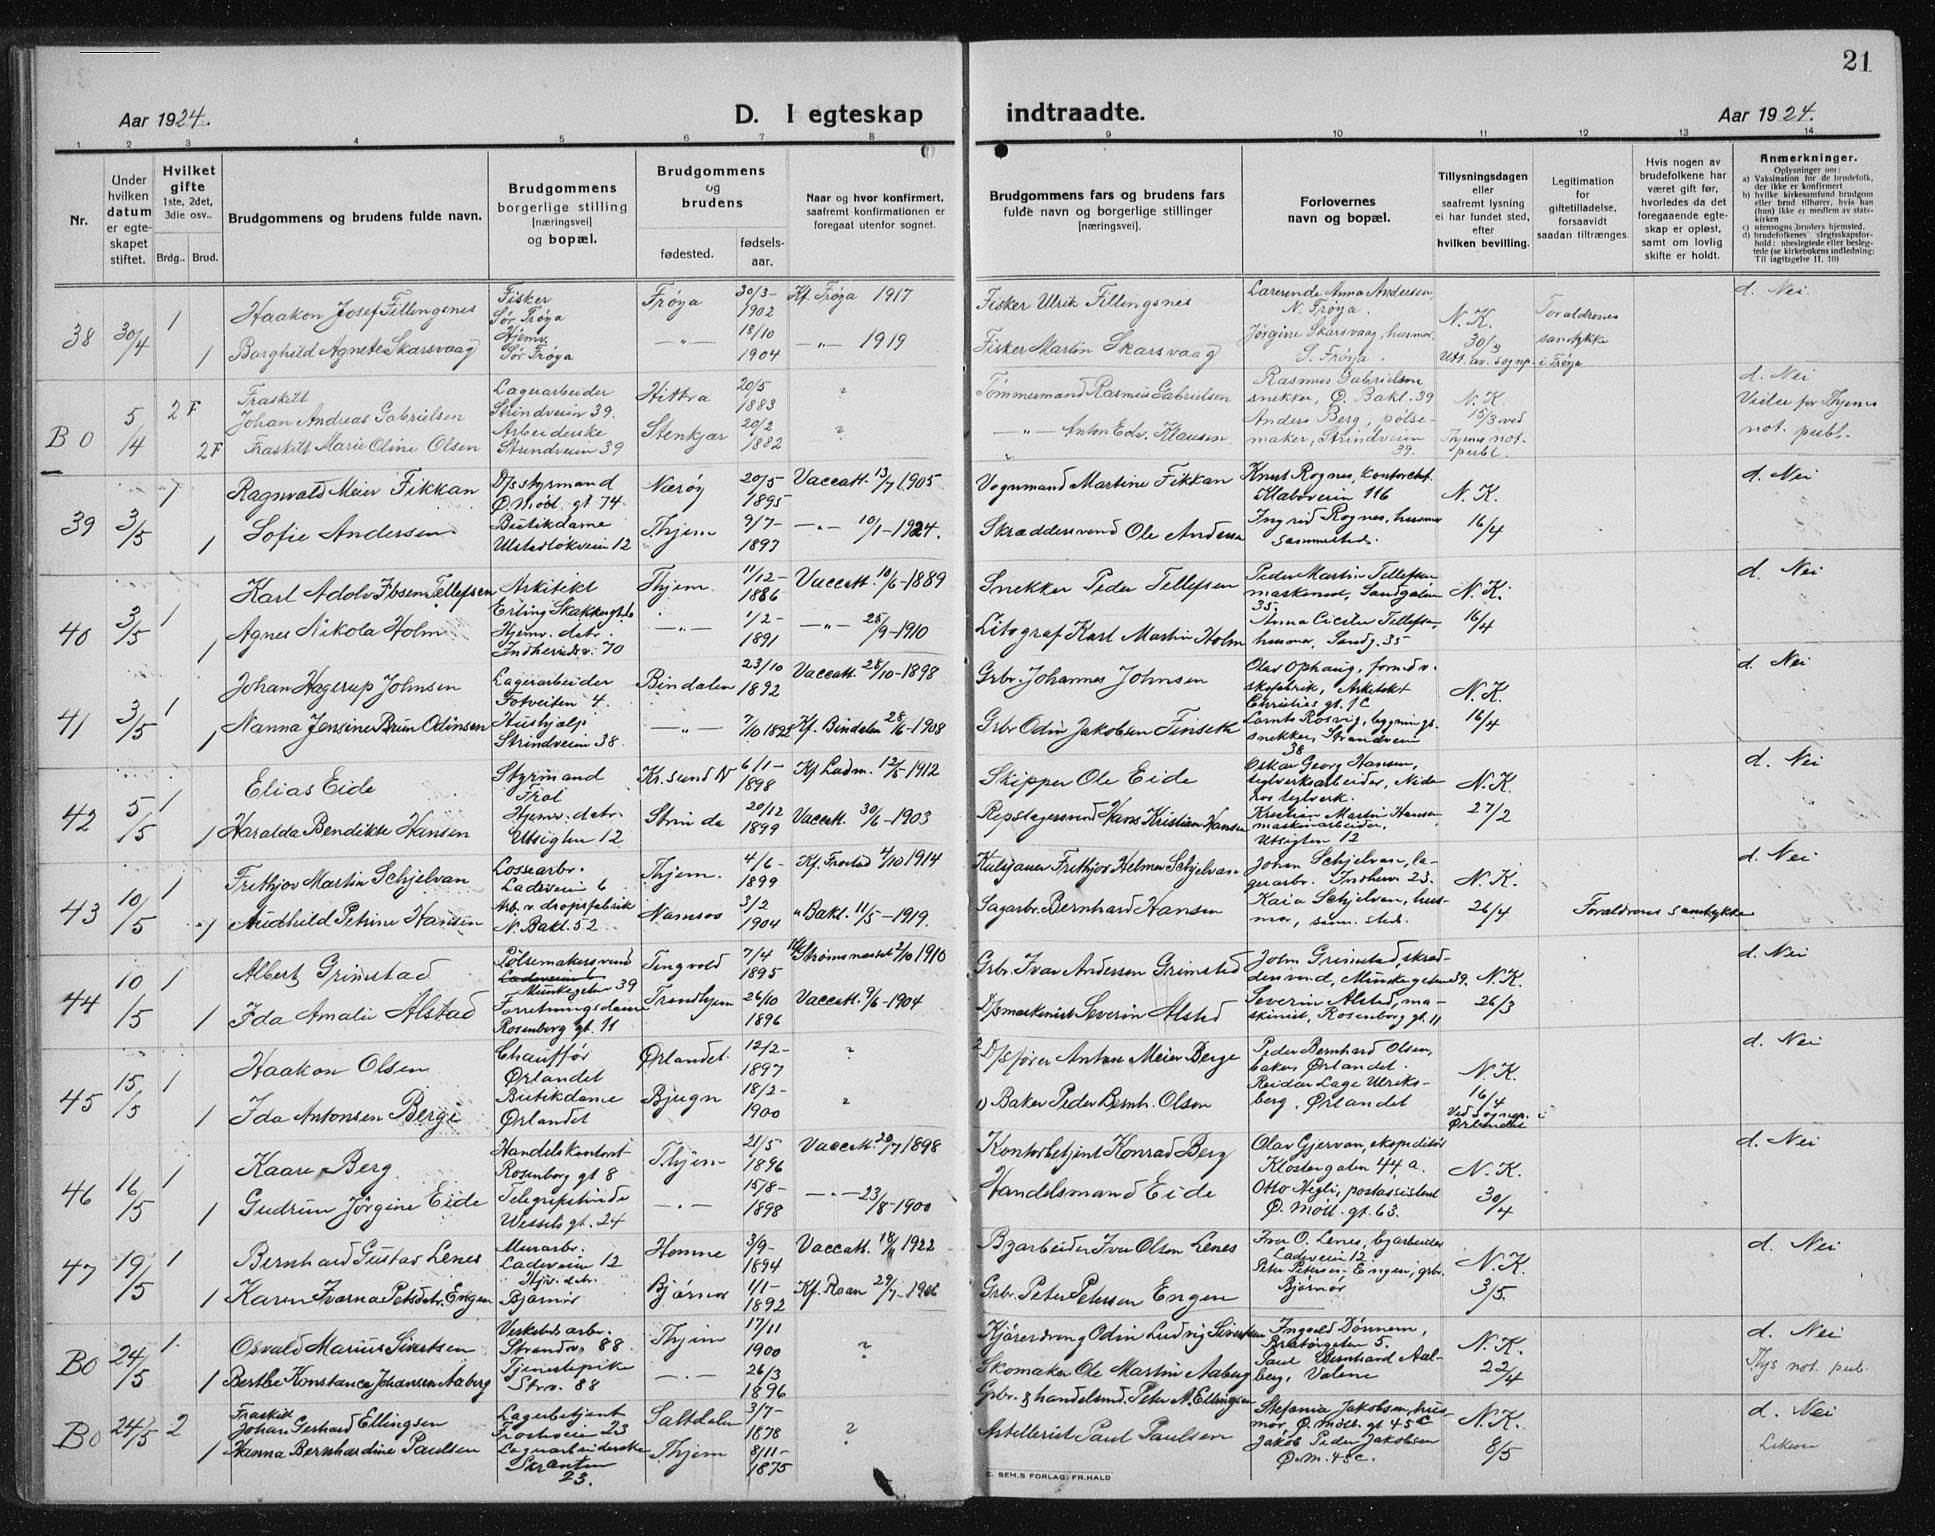 21
Aar 1924.
D. I egteskap
indtraadte.
Aar 1924.
1 2 3 4 5 6 7 8 9 10 11 12 13 14
Nr.
Under hvilken datum er egteskapet stiftet.
Hvilket gifte 1ste, 2det, 3die osv..
Brdg.. Brud.
Brudgommens og brudens fulde navn.
Brudgommens borgerlige stilling [næringsvei] og bopæl.
Brudgommens og brudens
fødested.
fødsels-aar.
Naar og hvor konfirmert, saafremt konfirmationen er foregaat utenfor sognet.
Brudgommens fars og brudens fars fulde navn og borgerlige stillinger [næringsvei].
Forlovernes navn og bopæl.
Tillysningsdagen eller saafremt lysning ei har fundet sted, efter hvilken bevilling.
Legitimation for giftetilladelse, forsaavidt saadan tiltrænges.
Hvis nogen av brudefolkene har været gift før, hvorledes da det foregaaende egteskap er opløst, samt om lovlig skifte er holdt.
Anmerkninger.
Oplysninger om:
a) Vaksination for de brudefolk, der ikke er konfirmert
b) hvilke kirkesamfund brudgom eller brud tilhører, hvis han (hun) ikke er medlem av statskirken
c) utensogns bruders hjemsted,
d) brudefolkenes slegtsskapsforhold: ubeslegtede eller beslegtede (se kirkebokens indledning: Til iagttagelse II. 10)
38 30/4 1 Haakon Josef Fillingsnes Fisker Sør Frøya Frøya 30/3- 1902 Kf. Frøya 1917 Fisker Ulrik Fillingsnes Lærerinde Anna Andersen, N. Frøya. N. K. 30/3 Utt. av sognp. i Frøya Foraldrenes samtykke d. Nei
1 Borghild Agnete Skarsvaag Hjemv. Sør Frøya —"— 18/10 1904 —"— 1919 Fisker Martin Skarsvaag Jørgine Skarsvaag, husmor, S. Frøya.
BO 5/4 2F Fraskilt Johan Andreas Gabrielsen Lagerarbeider Strindveien 39. Hittra 20/5 1883 ? Tømmermand Rasmus Gabrielsen Rasmus Gabrielsen snekker, Ø. Bakl. 39 N. K. 15/3 ved Thjems not. publ. d. Nei
2F Fraskilt Marie Oline Olsen Arbeiderske Strindveien 39 Stenkjær 20/2 1882 ? —"— Anton Edv. Klausen Anders Berg, pølsemaker, Strindveien 39. Viilse for Thjems not. publ.
39 3/5 1 Ragnvald Meier Fikkan D/s styrmand Ø. Möll. gt 74. Nærøy 20/5 1895 Vaccatt. 13/7 1905 Vognmand Martine Fikkan Knut Rognes, kontorchef Klæboveien 116 N. K. 16/4 d. Nei
1 Sofie Andersen. Butikdame Ulstadløkveien 12 Thjem 9/7- 1897 —"— 10/1-1924. Skræddersvend Ole Andersen Ingrid Rognes, husmor sammesteds.
40 3/5 1 Karl Adolv Ibsen Tellefsen Arkitekt Erling Skakkesgt. 6 Thjem 11/12- 1886 Vaccatt. 10/6-1889 Snekker Peder Tellefsen Peder Martin Tellefsen maskinist, Sandgaten 35. N. K. 16/4 d. Nei
1 Agnes Nikola Holm Hjemv. datr. Indherredsv. 70 —"— 1/2- 1891 —"— 25/9-1910 Litograf Karl Martin Holm Anna Cicilie Tellefsen, husmor, Sandg. 35
41 3/5 1 Johan Hagerup Johnsen Lagerarbeider Tofveiten 4. Bindalen 23/10 1892 Vaccatt. 28/10-1898 Grbr. Johannes Johnsen Olav Ophaug, formd v. skofabrik, Arkitekt Christies gt. 1c N. K. 16/4 d. Nei
1 Nanna Jensine Brun Odinsen Hushjelp Strindveien 38. —"— 7/10 1895 Kf. Bindalen 28/6-1908 Grbr Odin Jakobsen Finseth Lornts Rosvig, bygningssnekker, Strandveien 38
42 5/5 1 Elias Eide Styrmand Frol Kr. sund N 6/1- 1898 Kf Ladm. 12/5 1912 Skipper Ole Eide Oskar Georg Hansen, teglverksarbeider, Nidaros teglverk. N. K. 27/2 d. Nei
1 Haralda Bendikte Hansen Hjemv. datr. Utsigten 12 Strinda 20/12 1899 Vaccatt. 30/6-1903 Repslagersvend Hans Kristian Hansen Kristian Martin Hansen maskinarbeider, Utsigten 12
43 10/5 1 Frithjov Martin Schjelvan Lossearbr. Ladeveien 6 Thjem. 4/6- 1899 Kf. Frostad 4/10 1914 Kulsjauer Frithjov Helmer Schjelvan Johan Schjelvan, lagerarbr. Indherv. 23. N. K. 26/4 Foraldrenes samtykke d. Nei
1 Audhild Petrine Hansen Arb. v. dropsfabrik N. Bakl. 52 Namsos 3/2 1904 " Bakl. 11/5-1919. Sagarbr. Bernhard Hansen Kaia Schjelvan, husmor, sam. sted.
44 10/5 1 Albert Grimstad Pølsemakersvend Munkegaten 39 Tingvold 7/4 1895 Kf Strømsneset 2/10 1910 Grbr. Ivar Andersen Grimstad John Grimstad, skræddersvend, Munkegaten 39. N. K. 26/3 d. Nei
1 Ida Amalie Alstad Forretningsdame Rosenborg gt. 11 Trondhjem 26/10 1896 Vaccatt. 9/6-1904 D/s maskinist Severin Alstad Severin Alstad, maskinist, Rosenborg gt. 11
45 15/5 1 Haakon Olsen Chauffør Ørlandet Ørlandet 12/2- 1897 ? 2) D/s fører Anton Meier Berge Peder Bernhard Olsen, baker, Ørlandet. N. K. 16/4 Ved sognep. i Ørlandet d. Nei
1 Ida Antonsen Berge Butikdame Ørlandet Bjugn 18/2- 1900 ? 1) Baker Peder Bernh. Olsen Reidar Lage Ulriksberg, Ørlandet
46 16/5 1 Kaare Berg Handelskontorist Rosenborg gt 8 Thjem 21/5 1896 Vaccatt. 20/7 1898 Kontorbetjent Konrad Berg Olav Gjervan, ekspeditør Klostergaten 44, a. N. K. 30/4 d. Nei
1 Gudrun Jørgine Eide Telegrafistinde Wessels gt. 24 —"— 15/8- 1898 —"— 23/8-1900 Handelsmand Eide Otto Negli, postassistent Ø. Möll. gt. 63.
47 19/5 1 Bernhard Gustav Lenes Murarbr. Ladeveien 12 Hemne 3/9- 1894 Vaccatt. 18/11 1922 Byarbeider Iver Olsen Lenes Iver O. Lenes, byarbeider Ladeveien 12 N. K. 3/5. d. Nei
1 Karen Ivarna Petsdtr. Engen Hjv. datr. Bjørnør Bjørnør 1/1- 1892 Kf. Roan 29/7-1906 Grbr. Peter Petersen Engen Peter Petersen Engen, grbr. Bjørnør
BO 24/5 1. Osvald Marius Sivertsen Verkstedsarbr. Strandv. 88 Thjem 17/11 1900 ? Kjøredreng Odin Ludvig Sivertsen Ingvald Dønnem, Bratørgaten 5. N. K. 22/4 d. Nei
1 Berthe Konstance Johansen Aaberg Tjenestepike Strv. 88 —"— 26/3 1896 Skomaker Ole Martin Aaberg Paul Bernhard Aalberg, Valene Thjs not. pub.
BO 24/5 2 Fraskilt Johan Gerhard Ellingsen Lagerbetjent Frostveien 23 Saltdalen 3/7- 1878 ? Grbr. & handelsmd. Peter A. Ellingsen Stefania Jakobsen, husmor, Ø. Möll. gt 45c N. K. 8/5 d. Nei
1 Hanna Bernhardine Paulsen Lagerarbeiderske Skrænten 23. Thjem 8/11- 1875 Artillerist Paul Paulsen Jakob Peder Jakobsen Ø. M. 45c.
C. SEM.S FORLAG; FR. HALD